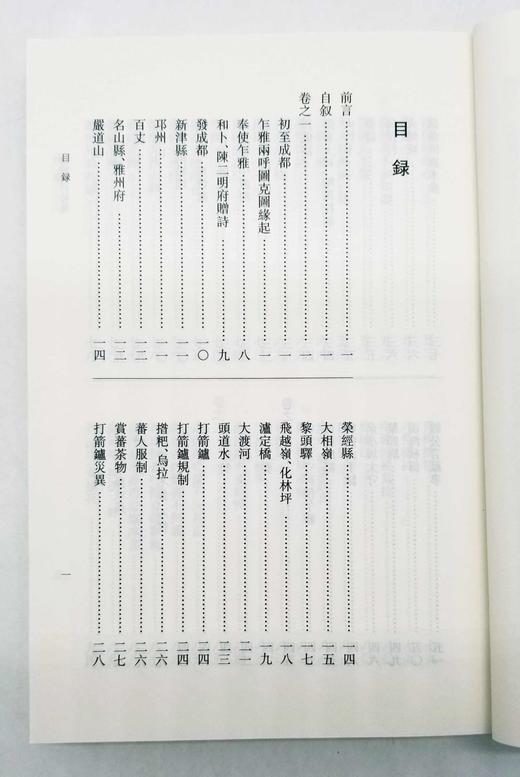 目錄
前言……一
自叙……一
卷之一……一
初至成都……一
乍雅兩呼圖克圖緣起……一
奉使乍雅……八
和卜、陳二明府贈詩……九
發成都……一〇
新津縣……一一
邛州……一一
百丈……一二
名山縣、雅州府……一二
嚴道山……一四
榮經縣……一四
大相嶺……一五
黎頭驛……一七
飛越嶺、化林坪……一八
瀘定橋……一九
大渡河……二一
頭道水……二三
打箭鑪……二四
打箭鑪規制……二四
撍粑、烏拉……二六
蕃人服制……二六
賞蕃茶物……二七
打箭鑪災異……二八
目錄
一